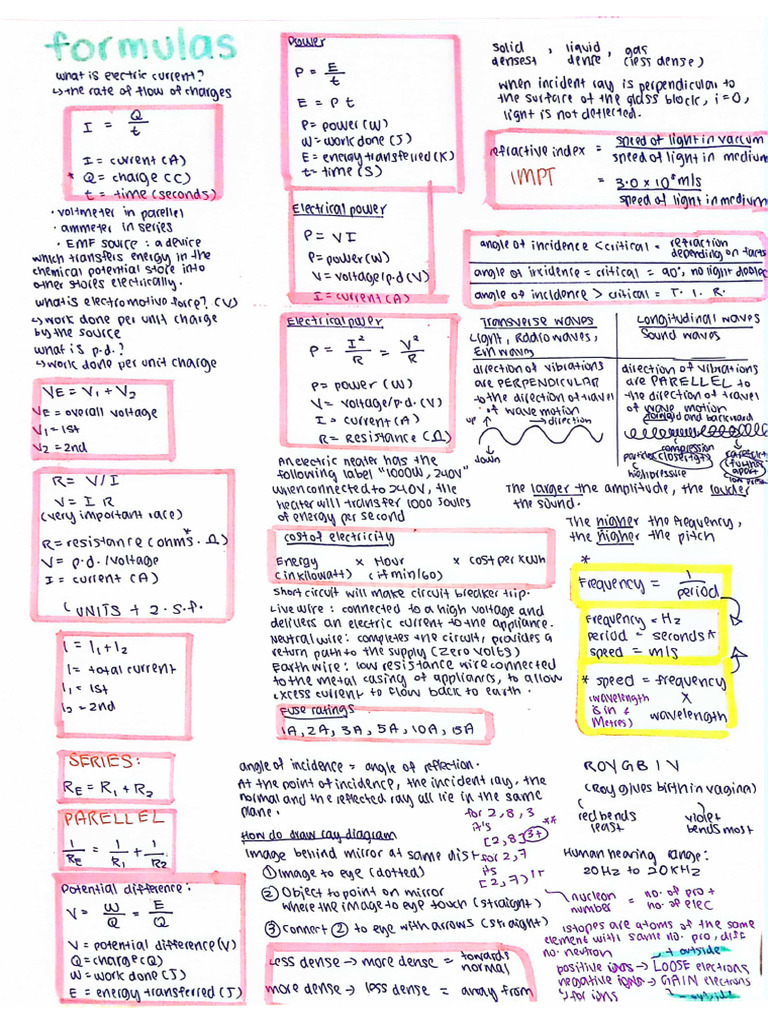 formulas
what is electric current?
↳ the rate of flow of charges
I = Q/t
I = current (A)
* Q = charge (C)
t = time (seconds)
· voltmeter in parellel
· ammeter in series
· EMF source : a device
which transfers energy in the
chemical potential store into
other stores electrically.
what is electromotive force? (V)
↳ work done per unit charge
by the source
what is p.d.?
↳ work done per unit charge
VE = V1 + V2
VE = overall voltage
V1 = 1st
V2 = 2nd
R = V/I
V = I R
(very important race)
R = resistance (ohms*. Ω)
V = p.d. /voltage
I = current (A)
(UNITS + 2. s.f.
I = I1 + I2
I = total current
I1 = 1st
I2 = 2nd
SERIES:
RE = R1 + R2
PARELLEL
1/RE = 1/R1 + 1/R2
Potential difference:
V = W/Q = E/Q
V = potential difference (V)
Q = charge (Q)
W = work done (J)
E = energy transferred (J)
Power
P = E/t
E = P t
P = power (W)
W = work done (J)
E = energy transferred (K)
t = time (S)
Electrical power
P = V I
P = power (W)
V = voltage/p.d (V)
I = current (A)
Electrical power
P = I²/R = V²/R
P = power (W)
V = voltage/p.d. (V)
I = current (A)
R = Resistance (Ω)
An electric heater has the
following label "1000W, 240V"
when connected to 240V, the
heater will transfer 1000 joules
of energy per second
cost of electricity
Energy × Hour × cost per kWh
(in kilowatt) (if min/60)
short circuit will make circuit breaker trip.
Live wire : connected to a high voltage and
delivers an electric current to the appliance.
Neutral wire: completes the circuit, provides a
return path to the supply (zero volts)
Earth wire : low resistance wire connected
to the metal casing of appliances, to allow
excess current to flow back to earth.
Fuse ratings
1A, 2A, 3A, 5A, 10A, 15A
angle of incidence = angle of reflection.
At the point of incidence, the incident ray, the
normal and the reflected ray all lie in the same
plane.
for 2, 8, 3
it's **
[2,8]3+
How do draw ray diagram
Image behind mirror at same dist
for 2,7
its
[2,7)1-
① Image to eye (dotted)
② Object to point on mirror
where the image to eye touch (straight)
③ Connect ② to eye with arrows (straight)
Less dense → more dense = towards
normal
more dense → less dense = away from
solid , liquid , gas
densest dense (less dense)
when incident ray is perpendicular to
the surface of the glass block, i = 0,
light is not deflected.
refractive index = speed of light in vaccum / speed of light in medium
IMPT
= 3.0 x 10⁸ m/s / speed of light in medium
angle of incidence < critical = refraction
depending on
angle of incidence = critical = 90°, no light
angle of incidence > critical = T. I. R.
Transverse waves
Light, Radio waves,
EM waves
direction of vibrations
are PERPENDICULAR
to the direction of travel
of wave motion
up
→ direction
down
Longitudinal waves
Sound waves
direction of vibrations
are PARELLEL to
the direction of travel
of wave motion
and backward
compression
particles (closer tgt)
high pressure
(further
apart)
low pressure
The larger the amplitude, the louder
the sound.
The higher the frequency,
the higher the pitch
*
Frequency = 1/period
Frequency = Hz
period = seconds *
speed = m/s
* speed = frequency
×
wavelength
(wavelength
is in
Metres)
ROYGBIV
(Roy gives birth in vagina)
red bends
least
violet
bends most
Human hearing range:
20Hz to 20KHz
nucleon
number = no. of pro +
no. of elec
istopes are atoms of the same
element with same no. pro, diff
no. neutron
+ outside
positive ions → LOOSE electrons
negative ions → GAIN electrons
for ions
- outside